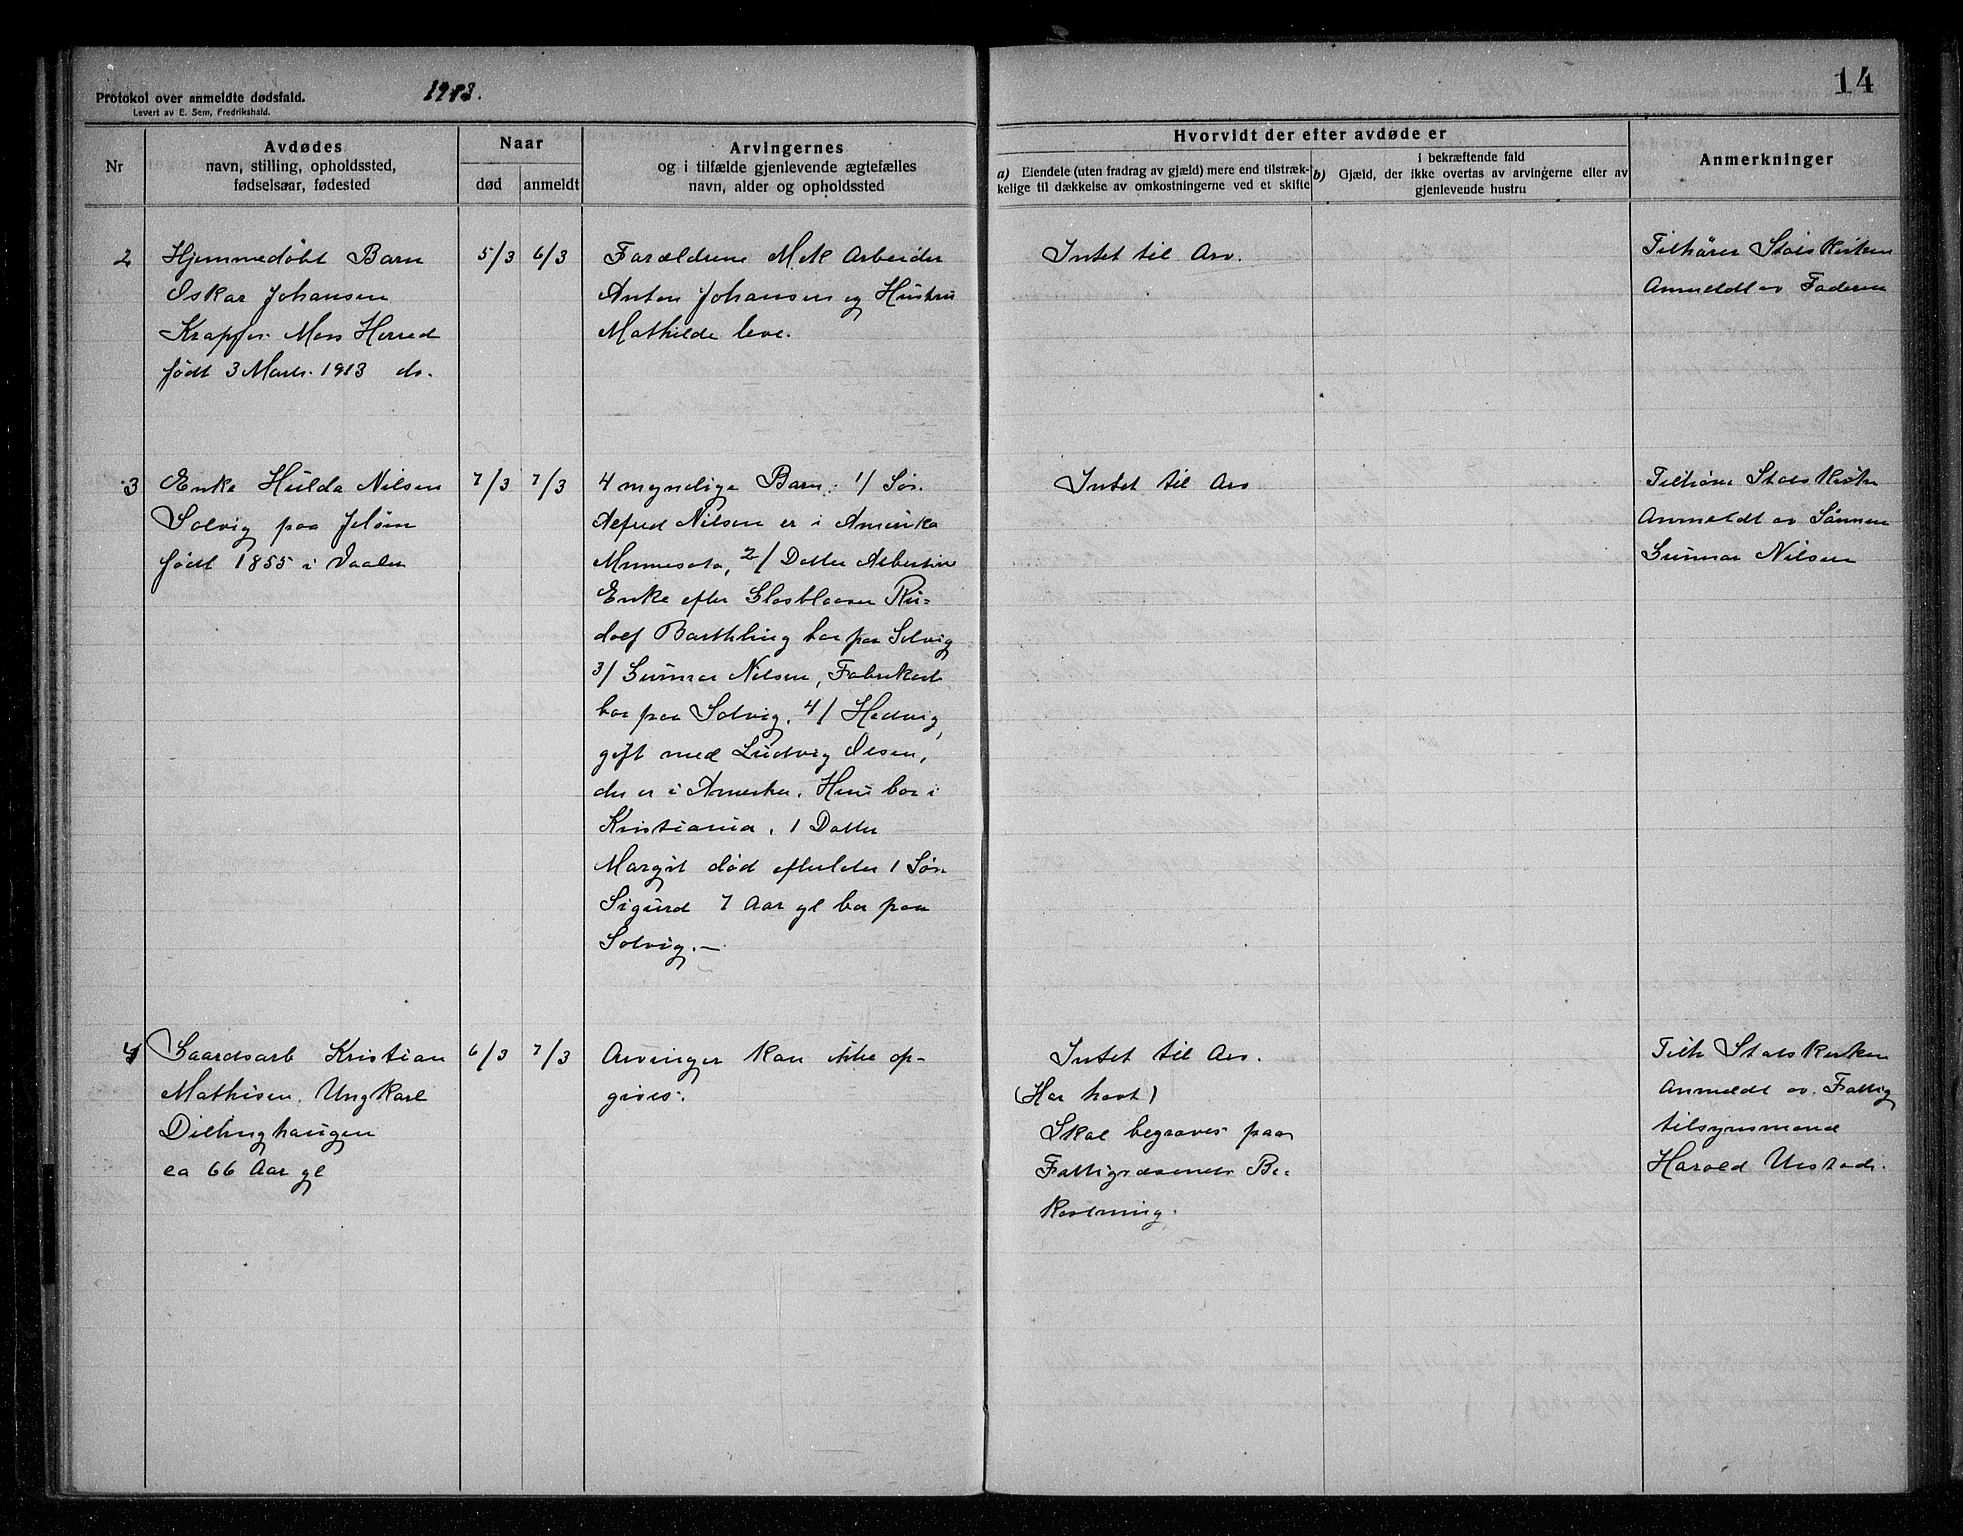 Protokol over anmeldte dødsfald.
Levert av E. Sem, Fredrikshald.
1913.
14
Nr
Avdødes
navn, stilling, opholdssted,
fødselsaar, fødested
Naar
død
anmeldt
Arvingernes
og i tilfælde gjenlevende ægtefælles
navn, alder og opholdssted
Hvorvidt der efter avdøde er
a) Eiendele (uten fradrag av gjæld) mere end tilstræk-
kelige til dækkelse av omkostningerne ved et skifte
i bekræftende fald
b) Gjæld, der ikke overtas av arvingerne eller av
gjenlevende hustru
Anmerkninger
2
Hjemmedøbt Barn
Oskar Johansen
Krapfos Moss Herred
født 3 Marts 1913 ds.
5/3
6/3
Forældrene Mek Arbeider
Anton Johansen og Hustru
Mathilde leve.
Intet til Arv.
Tilhører Statskirken
Anmeldt av Faderen
3
Enke Hulda Nilsen
Solvig paa Jeløen
født 1855 i Vaaler
7/3
7/3
4 myndige Barn: 1/ Søn
Alfred Nilsen er i Amerika
Minnesota, 2/ Datter Albertine
Enke efter Glasblaaser Ru=
dolf Barthling bor paa Solvig
3/ Gunnar Nilsen, Fabrikarb
bor paa Solvig, 4/ Hedvig,
gift med Ludvig Olsen,
der er i Amerika. Hun bor i
Kristiania. 1 Datter
Margit død efterlater 1 Søn
Sigurd 7 Aar gl bor paa
Solvig.-
Intet til Arv
Tilhører Statskirken
Anmeldt av Sønnen
Gunnar Nilsen
4
Gaardsarb Kristian
Mathisen. Ungkarl
Dillinghaugen
ca 66 Aar gl
6/3
7/3
Arvinger kan ikke op-
gives.
Intet til Arv.
(Har havt)
Skal begraves paa
Fattigvæsenets Be-
kostning.
Tilh Statskirken
Anmeldt av Fattig
tilsynsmand
Harald